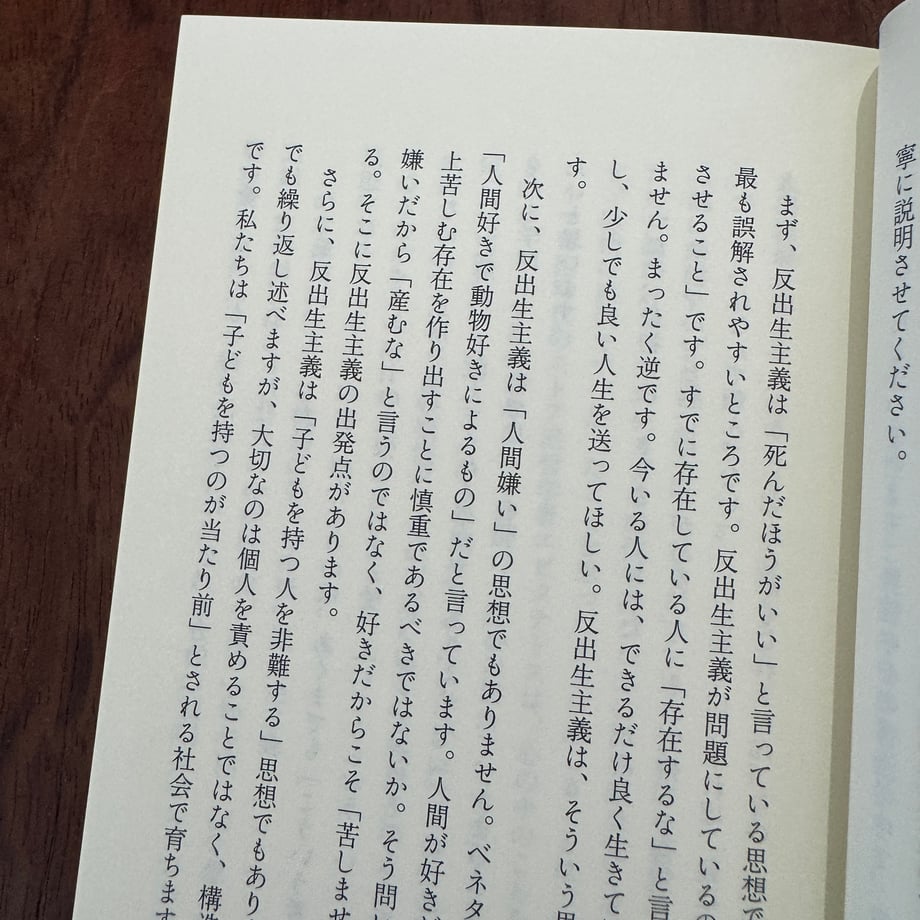 寧に説明させてください。
まず、反出生主義は「死んだほうがいい」と言っている思想で
最も誤解されやすいところです。反出生主義が問題にしているの
させること」です。すでに存在している人に「存在するな」と言
ません。まったく逆です。今いる人には、できるだけ良く生きて
し、少しでも良い人生を送ってほしい。反出生主義は、そういう思
す。
次に、反出生主義は「人間嫌い」の思想でもありません。ベネタ
「人間好きで動物好きによるもの」だと言っています。人間が好きだ
上苦しむ存在を作り出すことに慎重であるべきではないか。そう問い
嫌いだから「産むな」と言うのではなく、好きだからこそ「苦しませ
る。そこに反出生主義の出発点があります。
さらに、反出生主義は「子どもを持つ人を非難する」思想でもあり
でも繰り返し述べますが、大切なのは個人を責めることではなく、構造
です。私たちは「子どもを持つのが当たり前」とされる社会で育ちます